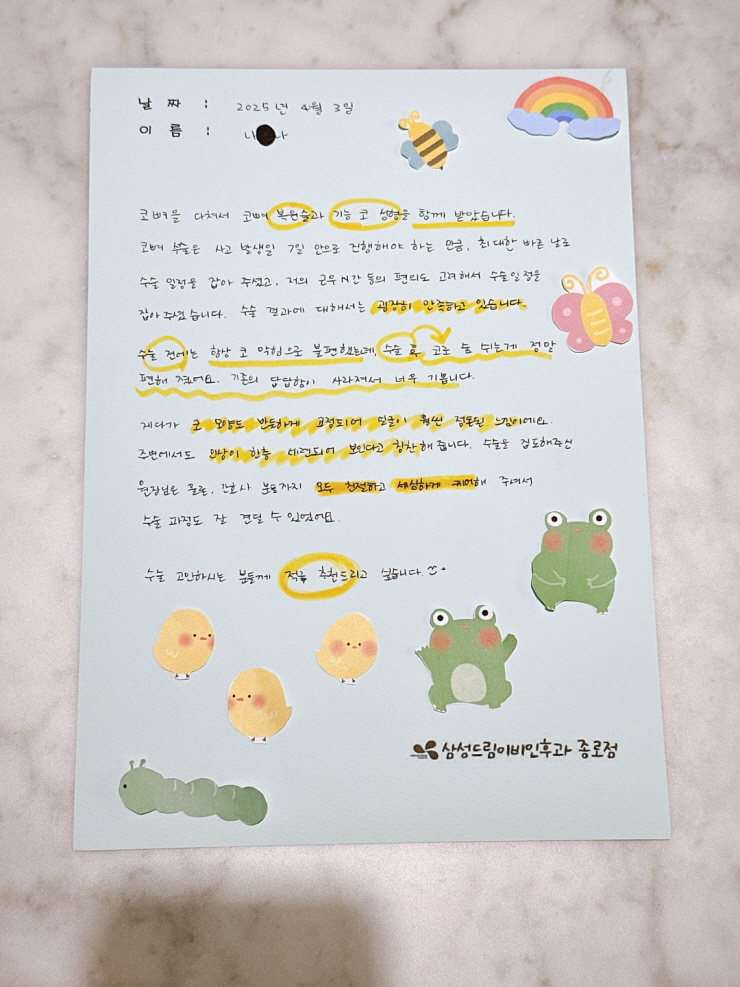 날 짜 : 2025년 4월 3일
이 름 : 나 나
코뼈를 다쳐서 코뼈 복원술과 기능 코 성형을 함께 받았습니다.
코뼈 수술은 사고 발생일 7일 안으로 진행해야 하는 만큼, 최대한 빠른 날로
수술 일정을 잡아 주셨고, 저의 근무시간 등의 편의도 고려해서 수술일정을
잡아주셨습니다. 수술 결과에 대해서는 굉장히 만족하고 있습니다.
수술 전에는 항상 코 막힘으로 불편했는데, 수술 후 코로 숨 쉬는게 정말
편해 졌어요. 기존의 답답함이 사라져서 너무 기쁩니다.
게다가 코 모양도 반듯하게 교정되어 얼굴이 훨씬 정돈된 느낌이에요.
주변에서도 인상이 한층 세련되어 보인다고 칭찬해 줍니다. 수술을 집도해주신
원장님은 물론, 간호사 분들까지 모두 친절하고 세심하게 케어해 주셔서
수술 과정도 잘 견딜 수 있었어요.
수술 고민하시는 분들께 적극 추천드리고 싶습니다.
삼성드림이비인후과 종로점